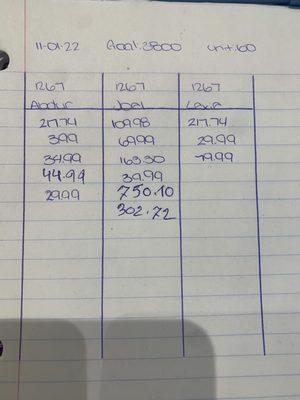 11-01-22 Goal:3800 Unit:60
1267 1267 1267
Abdur Joel
217.74 109.98 217.74
399 69.99 29.99
34.99 163.30 79.99
44.99 39.99
29.99 750.10
302.72